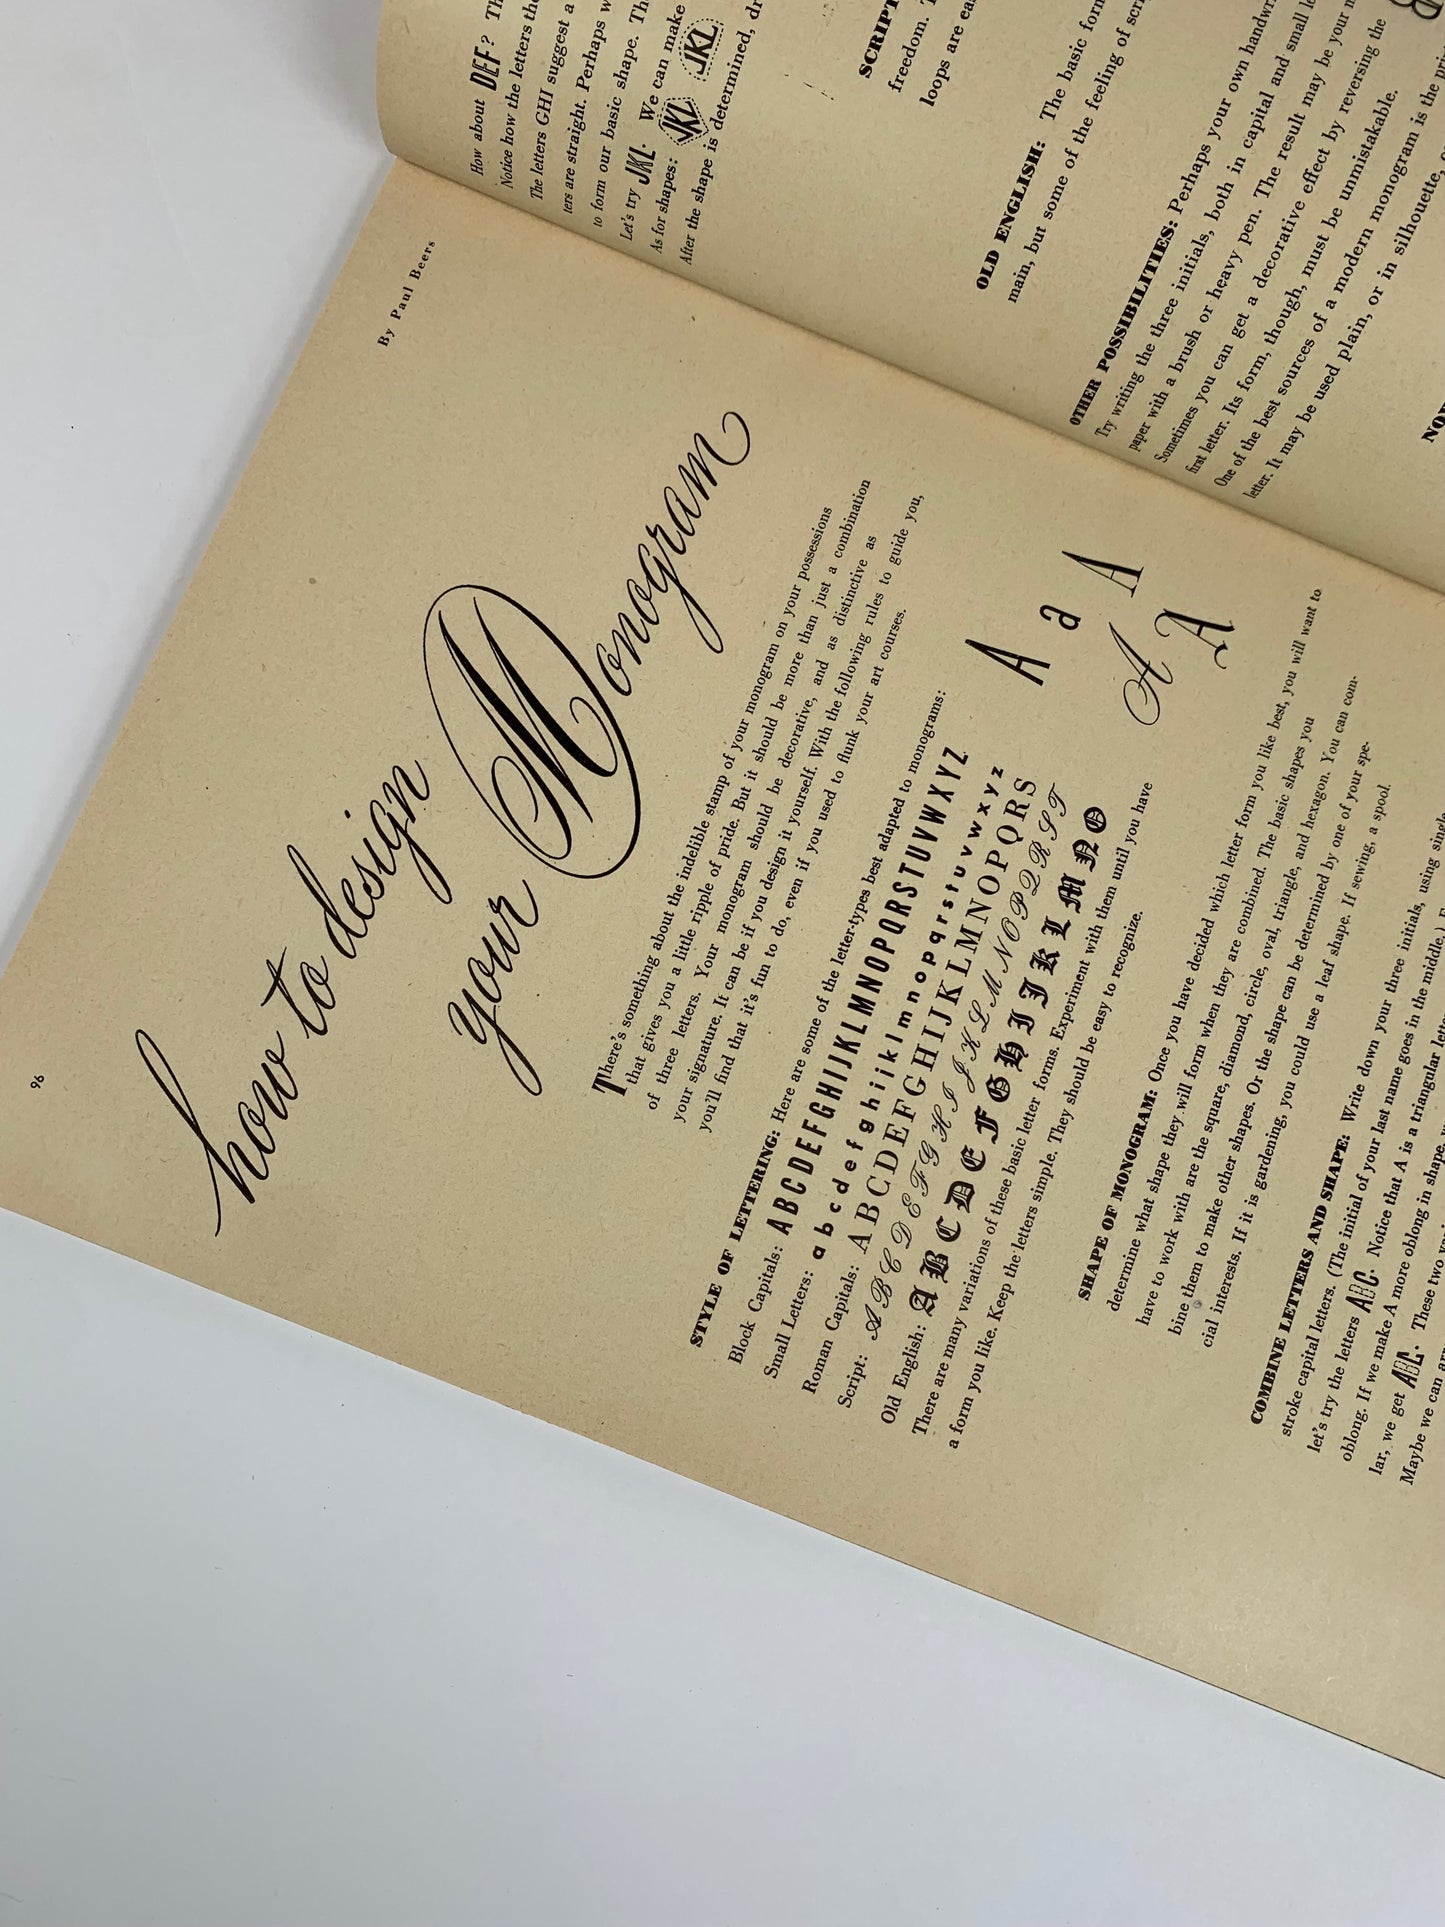 96
how to design
your Monogram
By Paul Beers
There's something about the indelible stamp of your monogram on your possessions
that gives you a little ripple of pride. But it should be more than just a combination
of three letters. Your monogram should be decorative, and as distinctive as
your signature. It can be if you design it yourself. With the following rules to guide you,
you'll find that it's fun to do, even if you used to flunk your art courses.
STYLE OF LETTERING: Here are some of the letter-types best adapted to monograms:
Block Capitals: ABCDEFGHIJKLMNOPQRSTUVWXYZ
Small Letters: abcdefghijklmnopqrstuvwxyz
Roman Capitals: ABCDEFGHIJKLMNOPQRS
Script: ABCDEFGHIJKLMNOPQRST
Old English: ABCDEFGHIJKLMNO
A a A A A
There are many variations of these basic letter forms. Experiment with them until you have
a form you like. Keep the letters simple. They should be easy to recognize.
SHAPE OF MONOGRAM: Once you have decided which letter form you like best, you will want to
determine what shape they will form when they are combined. The basic shapes you
have to work with are the square, diamond, circle, oval, triangle, and hexagon. You can com-
bine them to make other shapes. Or the shape can be determined by one of your spe-
cial interests. If it is gardening, you could use a leaf shape. If sewing, a spool.
COMBINE LETTERS AND SHAPE: Write down your three initials, using single
stroke capital letters. (The initial of your last name goes in the middle.)
let's try the letters ABC. Notice that A is a triangular
oblong. If we make A more oblong in shape,
lar, we get ABC. These two
Maybe we can
How about DEF?
Notice how the letters
The letters GHI suggest a
ters are straight. Perhaps
to form our basic shape.
Let's try JKL. We can make
As for shapes: JKL JKL
After the shape is determined,
SCRIPT
freedom.
loops are
OLD ENGLISH: The basic
main, but some of the feeling of
OTHER POSSIBILITIES: Perhaps your own
Try writing the three initials, both in capital and small
paper with a brush or heavy pen. The result may be your
Sometimes you can get a decorative effect by reversing the
first letter. Its form, though, must be unmistakable.
One of the best sources of a modern monogram is the
letter. It may be used plain, or in silhouette,